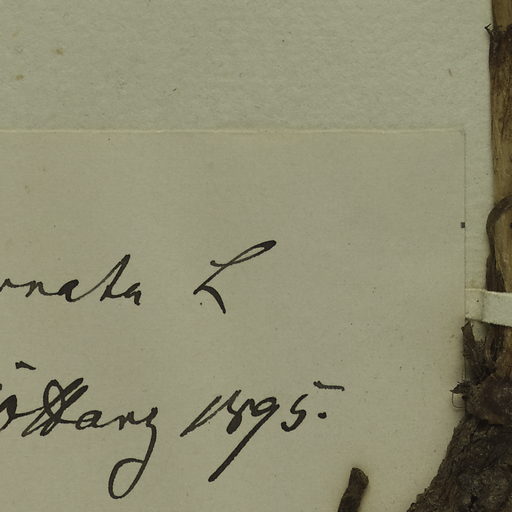 rnata L
Harz 1895.